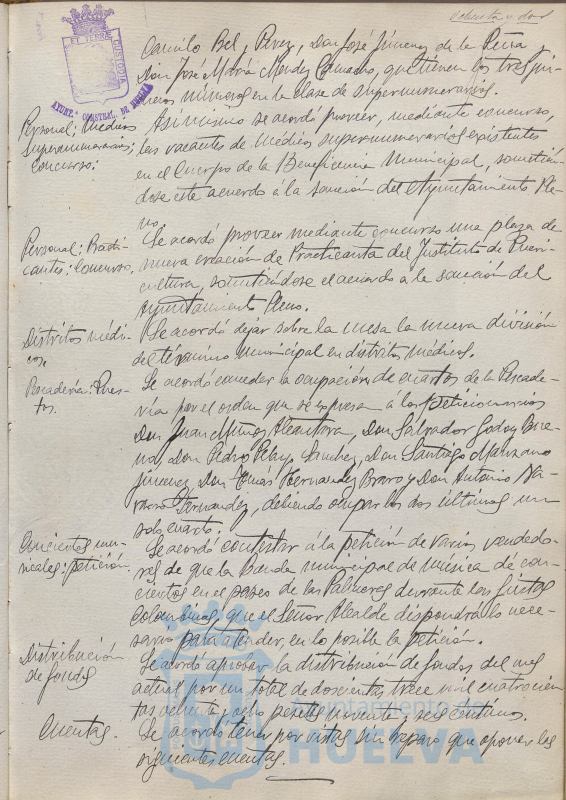 ochenta y dos
ET TERRÆ CUSTODIA
AYUNT.º CONSTNAL. DE HUELVA
Camilo Bel y Perez, Don José Jiménez de la Peña
Don José María Mendez Camacho, que tienen los tres primeros
números en la clase de supernumerarios.
Personal; Médicos
Supernumerarios;
Concurso.
Asimismo se acordó proveer, mediante concurso,
las vacantes de Médicos supernumerarios existentes
en el Cuerpo de la Beneficencia Municipal, sometién-
dose este acuerdo a la sanción del Ayuntamiento Ple-
no.
Personal; Practi-
cantes; Concurso.
Se acordó proveer mediante concurso una plaza de
nueva creación de Practicanta del Instituto de Pueri-
cultura, sometiéndose el acuerdo a la sanción del
Ayuntamiento Pleno.
Distritos médi-
cos.
Se acordó dejar sobre la mesa la nueva división
del término municipal en distritos médicos.
Pescadería: Pues-
tos.
Se acordó conceder la ocupación de cuartos de la Pescade-
ría por el orden que se expresa á los peticionarios
Don Juan Muñoz Alcantara, Don Salvador Godoy Bue-
no, Don Pedro Pelayo Sanchez, Don Santiago Manzano
Jimenez, Don Tomás Hernandez Bravo y Don Antonio Na-
varro Fernandez, debiendo ocupar los dos últimos un
solo cuarto.
Conciertos mu-
sicales: petición.
Se acordó contestar á la petición de varios vendedo-
res de que la banda municipal de música dé con-
ciertos en el paseo de las Palmeras durante las fiestas
colombinas, que el Señor Alcalde dispondrá lo nece-
sario para atender, en lo posible la petición.
Distribución
de fondos
Se acordó aprobar la distribución de fondos del mes
actual por un total de doscientas trece mil cuatrocien-
tas ochenta y ocho pesetas noventa y seis céntimos.
Cuentas.
Se acordó tener por vistas sin reparo que oponer las
siguientes cuentas.
Ayuntamiento de
HUELVA